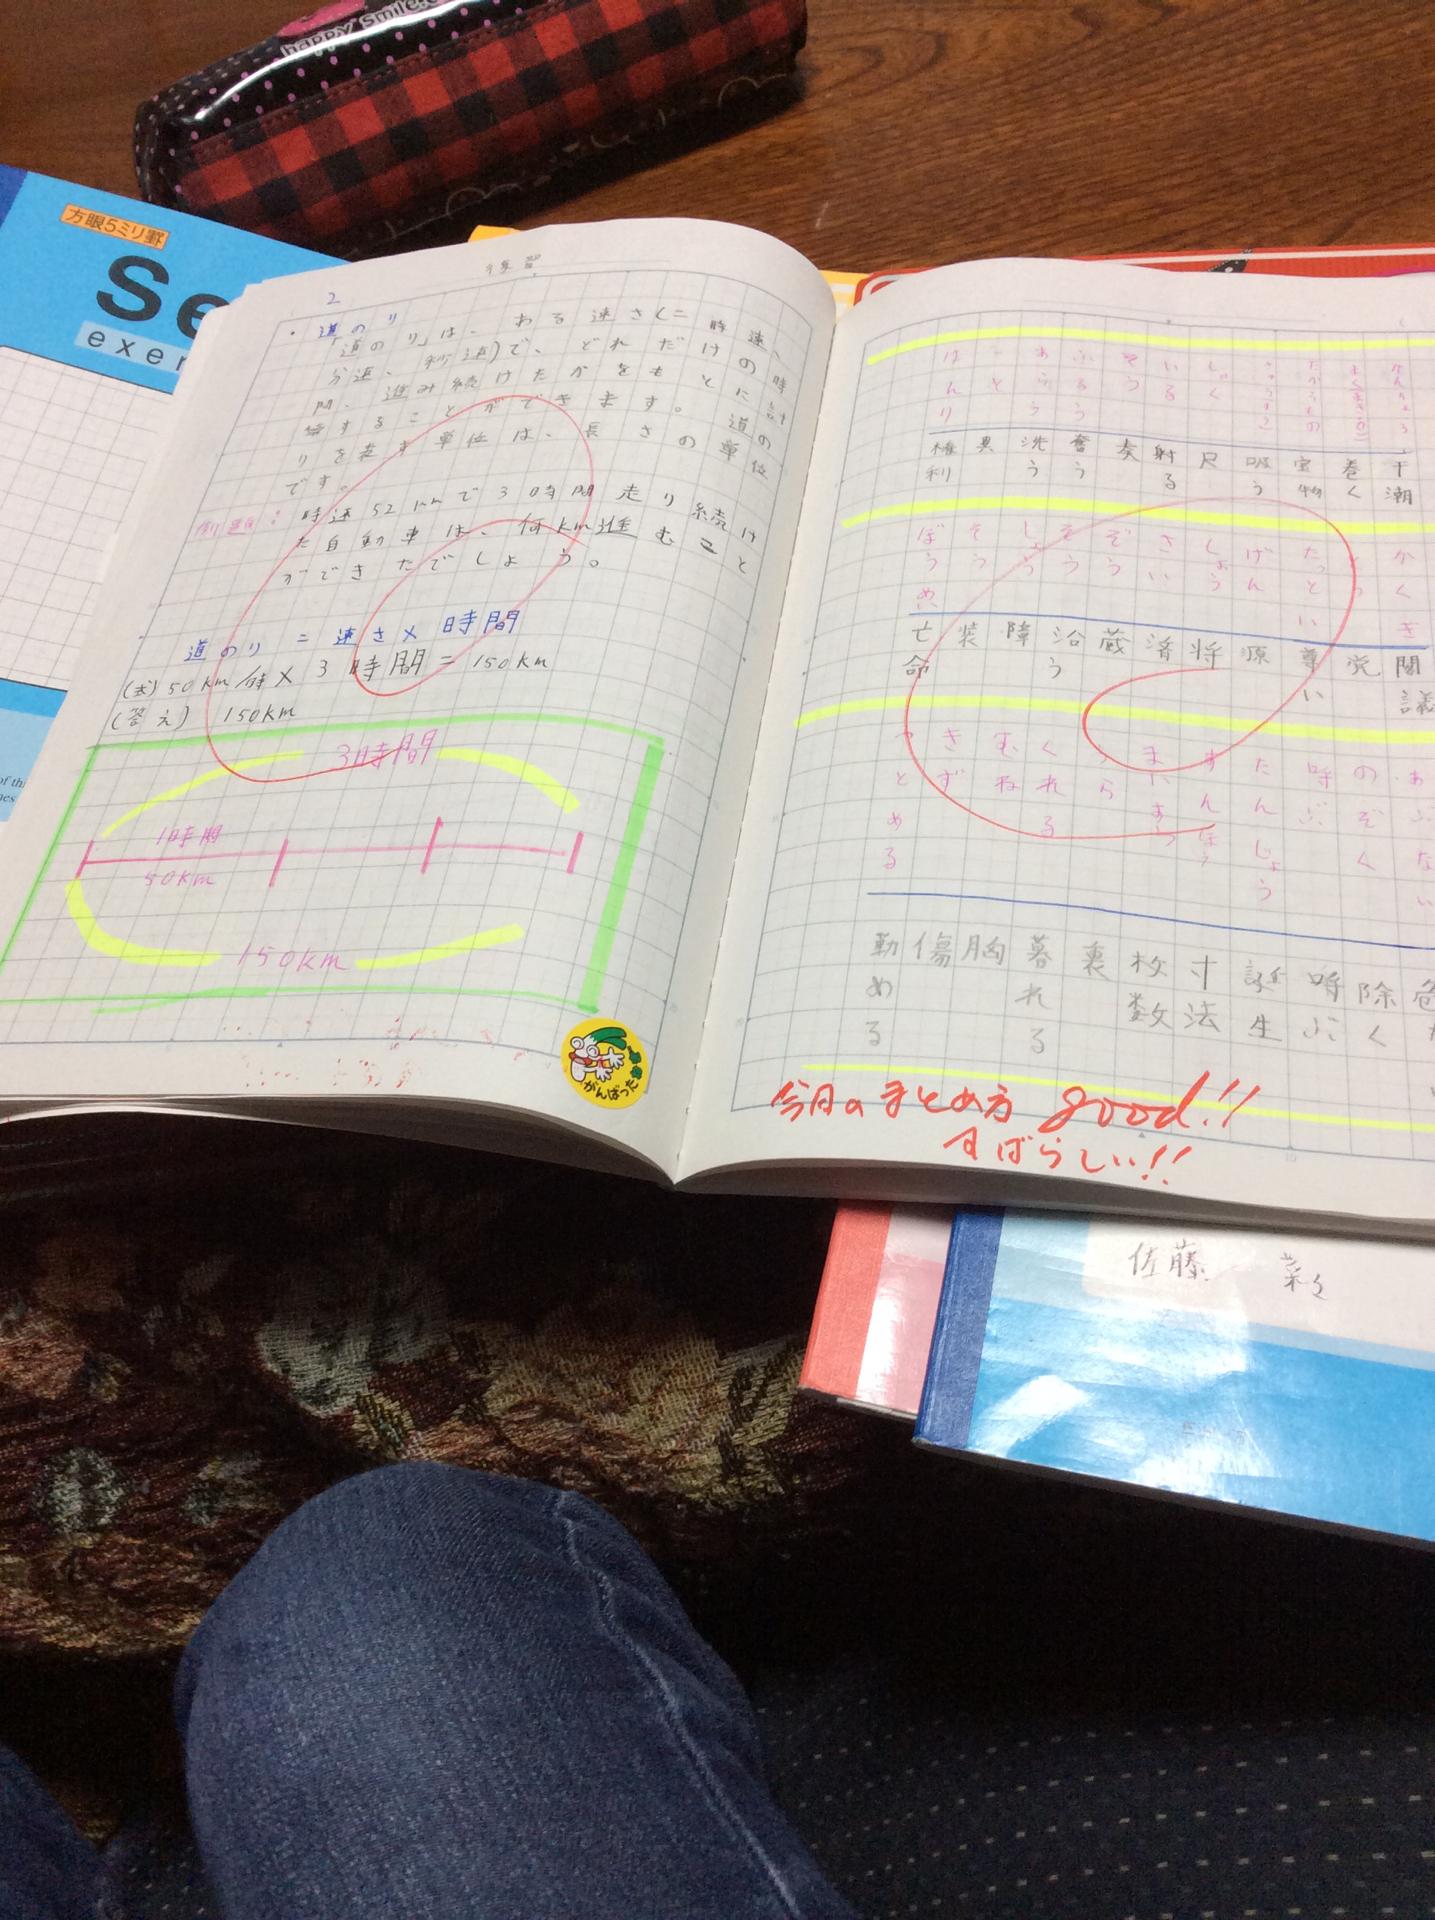 happy smile
方眼5ミリ罫
Se
exer
練習
2
・道のり
「道のり」は、ある速さ(=時速、
分速、秒速)で、どれだけの時
間、進み続けたかをもとに計
算することができます。道の
りを表す単位は、長さの単位
です。
例題:時速52kmで3時間走り続け
た自動車は、何km進むこと
ができたでしょう。
道のり=速さ×時間
(式)50km/時×3時間=150km
(答え)150km
3時間
1時間
50km
150km
がんばったね
権利 異 洗う 奮う 奏 射る 尺 吸う 宝物 巻く 干潮
ぼうめい そう しょう そう ぞう さい しょう げん たっとい とう かくぎ
亡命 装 障 沿う 蔵 済 将 源 尊い 党 閣議
つとめる きず むね くれる うら まいすう すんぽう たんじょう 呼ぶ のぞく あぶない
勤める 傷 胸 暮れる 裏 枚数 寸法 誕生 呼ぶ 除く 危
今日のまとめ方 good!!
すばらしい!!
佐藤 彩